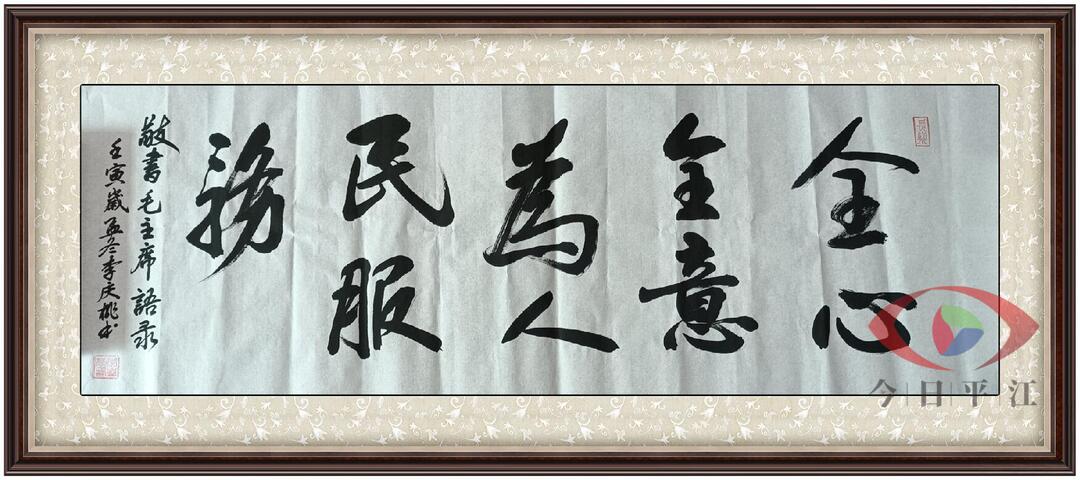 全心
全意
為人
民服
務
敬書毛主席語录
壬寅歲孟冬李庆桃书
今日平江